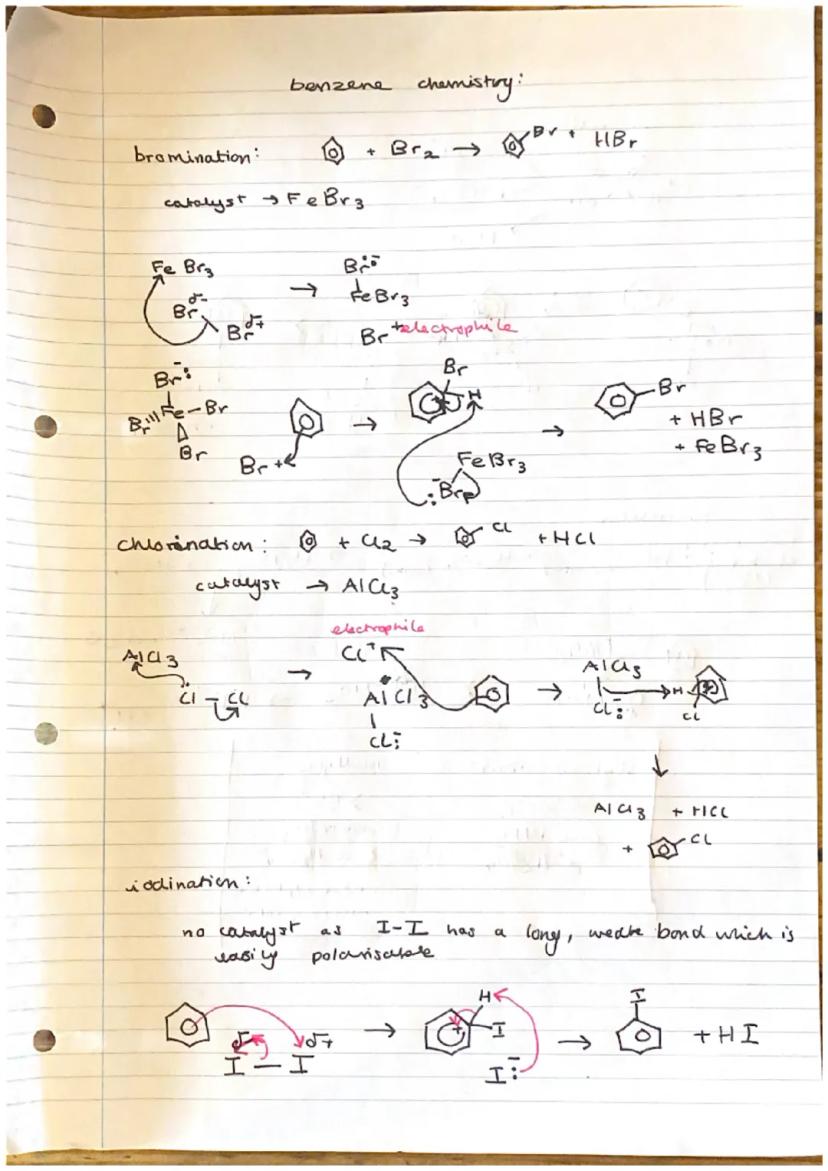 benzene chemistry:
bromination: + Br2 → Br + HBr
catalyst → FeBr3
Fe Br3 → Br:⁻
Br δ- FeBr3
Br δ+ Br+ electrophile
Br⁻: Br
Br Fe - Br → H → Br
+ HBr
Br Br+ FeBr3 + FeBr3
:⁻Br
chlorination: + Cl2 → Cl + HCl
catalyst → AlCl3
electrophile
AlCl3 → Cl+ → AlCl3
Cl - Cl AlCl3 Cl:⁻ H + Cl
Cl:⁻
↓
AlCl3 + HCl
+ Cl
iodination:
no catalyst as I-I has a long, weak bond which is
easily polarisable
δ- δ+ → H I → I + HI
I — I + I:⁻